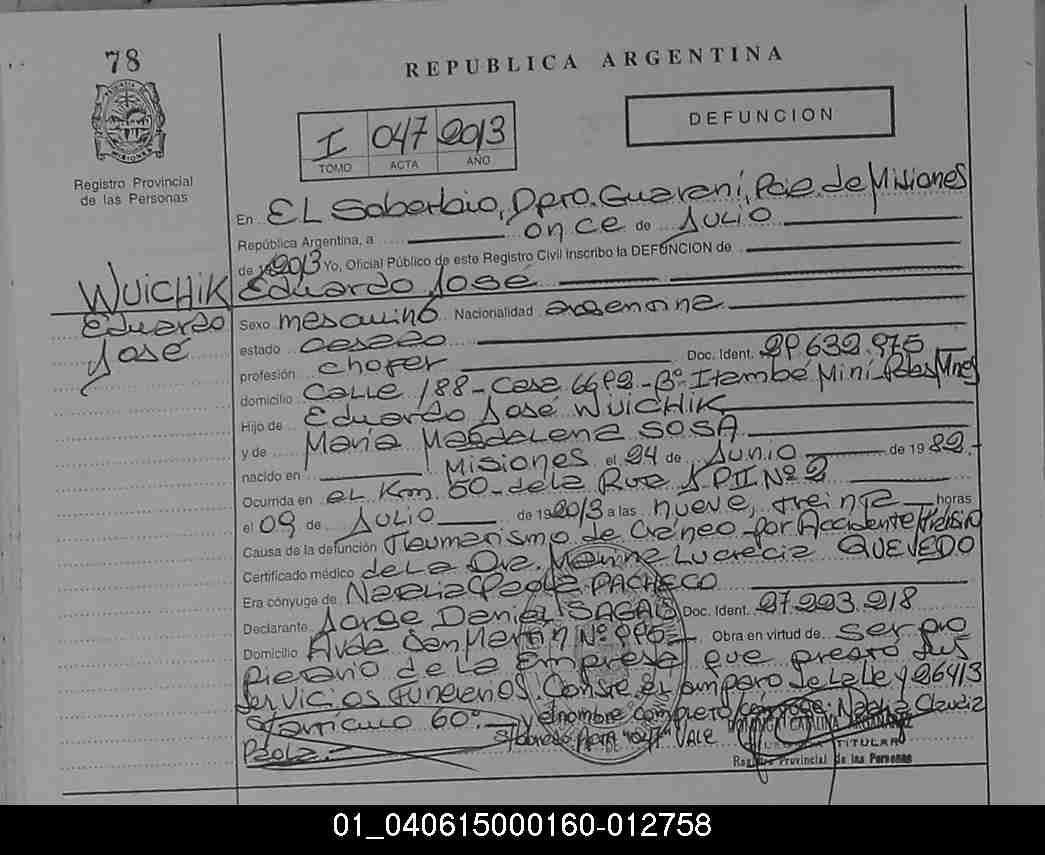 78
REPUBLICA ARGENTINA
I 047 2013
TOMO ACTA AÑO
DEFUNCION
Registro Provincial
de las Personas
En EL Soberbio, Dpto. Guaraní, Pcia. de Misiones
República Argentina, a once de Julio
de 2013 Yo, Oficial Público de este Registro Civil Inscribo la DEFUNCION de
WUICHIK Eduardo José
Eduardo
José
Sexo masculino Nacionalidad argentina
estado casado
profesión chofer Doc. Ident. 29.632.975
domicilio Calle 188 - Casa - B° Itambé Miní - Pdas Mnes
Hijo de Eduardo José WUICHIK
y de María Magdalena SOSA
nacido en Misiones el 24 de Junio de 1982.-
Ocurrida en el Km. 60 - de la Ruta Nº 2
el 09 de Julio de 192013 a las nueve, treinta horas
Causa de la defunción Traumatismo de Cráneo por Accidente
Certificado médico de La Dra. Marina Lucrecia QUEVEDO
Era cónyuge de Natalia Paola PACHECO
Declarante Jorge Daniel Doc. Ident. 27.223.218
Domicilio Avda San Martín Nº Obra en virtud de ser pro
pietario de La Empresa que prestó sus
servicios Fúnebres. Conste, el amparo de La Ley 26413
s/artículo 60º y el nombre completo cónyuge: Natalia Claudia
Paola.- s/borrado Acta "047" VALE
TITULAR
Registro Provincial de las Personas
01_040615000160-012758